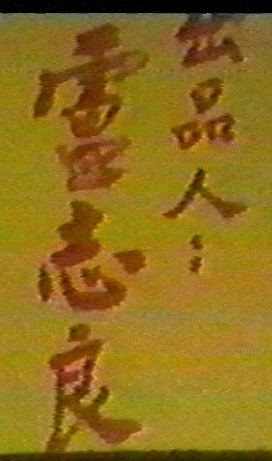 出品人：
雷志良